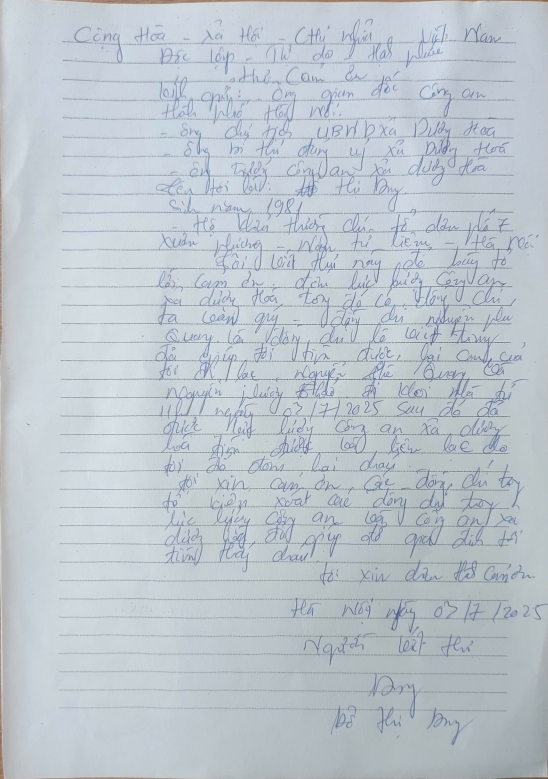 Cộng Hòa - Xã Hội - Chủ nghĩa Việt Nam
Độc lập - Tự do - Hạnh phúc
Thư Cảm ơn
Kính gửi: - ông giám đốc Công an
thành phố Hà Nội.
- ông chủ tịch UBND xã Dương Hoà
- ông bí thư đảng uỷ xã Dương Hoà
- ông trưởng công an xã dương Hoà
tên tôi là: Đỗ Thị Dung
Sinh năm 1981
- Hộ khẩu thường chú: tổ dân phố 7
Xuân phương - Nam từ liêm - Hà Nội
Tôi viết thư này để bày tỏ
lời cảm ơn đến lực lượng Công an
xã dương Hoà trong đó có đồng chí
tạ văn quý - đồng chí nguyễn phú
Quang và đồng chí lê việt tùng
đã giúp tôi tìm được lại con của
tôi đi lạc nguyễn thế Quang và
nguyễn phương thảo đi khỏi nhà từ
ngày 07/7/2025 sau đó đã
được lực lượng công an xã dương
hoà tìm được và liên lạc cho
tôi để đón lại cháu.
tôi xin cảm ơn các đồng chí trong
tổ kiểm xoát các đồng chí trong
lực lượng công an và công an xã
dương hoà đã giúp đỡ gia đình tôi
tìm thấy cháu.
tôi xin chân thành Cảm ơn
Hà Nội ngày 07/7/2025
Người viết thư
Dung
Đỗ thị Dung